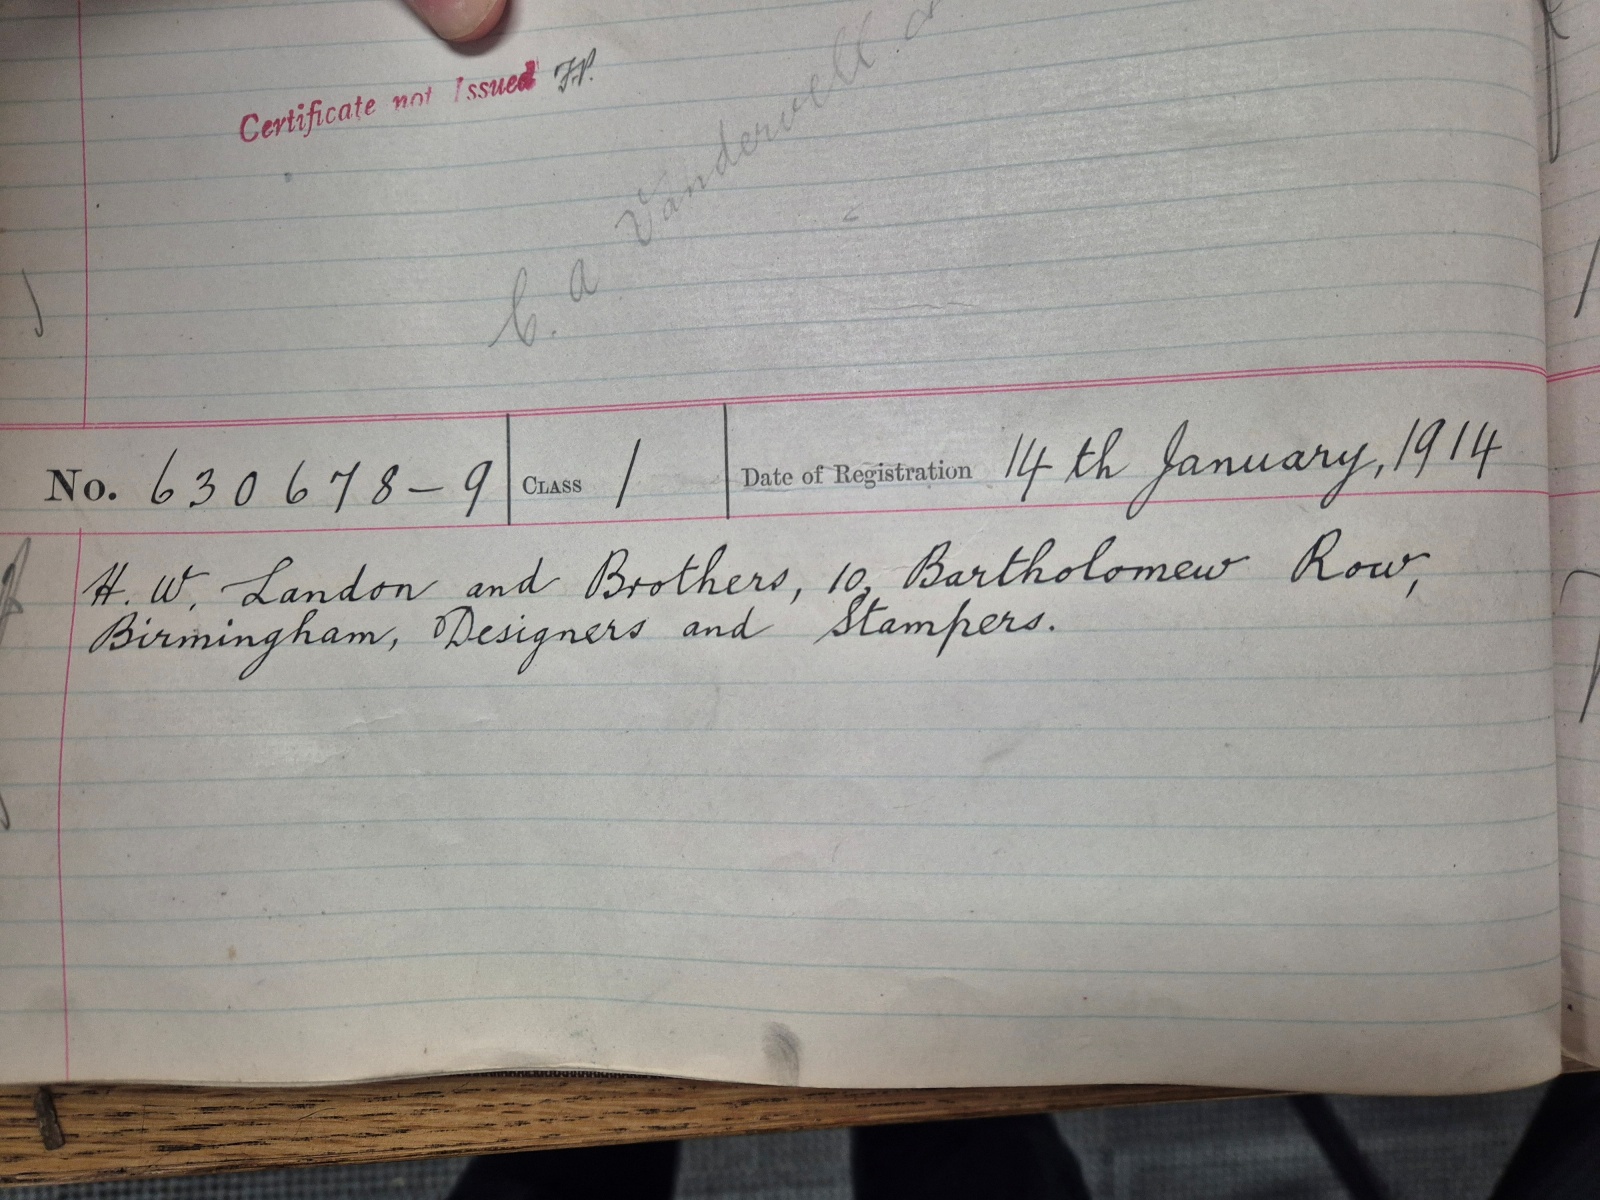 Certificate not Issued F.P.
C. A Vandervell
No. 630678-9 CLASS 1 Date of Registration 14th January, 1914
H. W. Landon and Brothers, 10, Bartholomew Row,
Birmingham, Designers and Stampers.